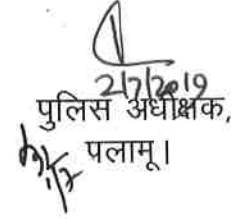 2/7/2019
पुलिस अधीक्षक,
पलामू।